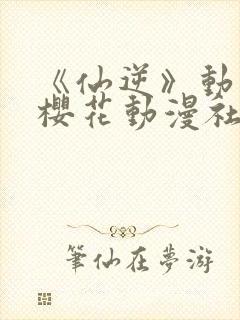 《仙逆》動
櫻花動漫社
筆仙在夢游